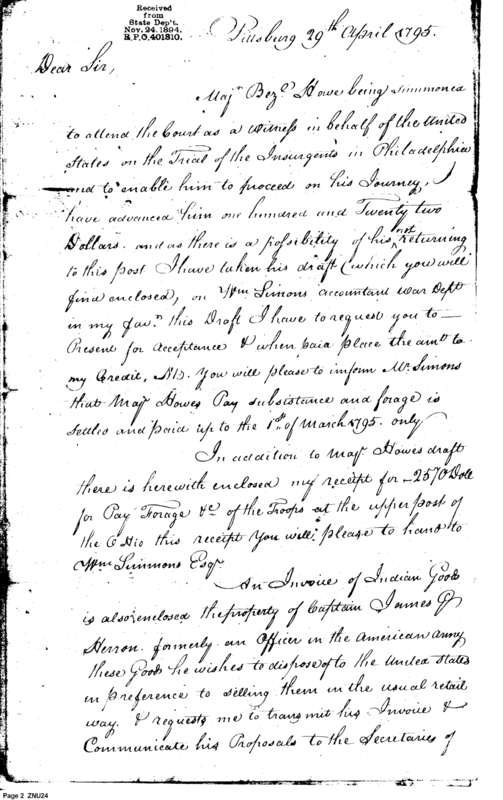 Received
from
State Dep't.
Nov. 24. 1894.
R.P.O, 401310.
Pittsburg 29th April 1795.
Dear Sir,
Majr Bezl Howe being summoned
to attend the Court as a witness in behalf of the United
States on the Trial of the Insurgents in Philadelphia
and to enable him to proceed on his Journey, I
have advanced him one hundred and Twenty two
Dollars. and as there is a possibility of his not returning
to this post I have taken his draft (which you will
find enclosed, on Wm Simons accountant War Dept
in my favr. this Draft I have to request you to —
Present for Acceptance & when paid place the amt to
my Credit, NB. You will please to inform Mr. Simons
that Majr Howes Pay subsistance and forage is
settled and paid up to the 1st of March 1795. only
In addition to Majr Howes draft
there is herewith enclosed my receipt for 2570 Doll
for Pay Forage &c of the Troops at the upper post of
the Ohio this receipt You will please to hand to
Wm Simmons Esqr
An Invoice of Indian Goods
is also enclosed the property of Captain James G
Herron. formerly an Officer in the American Army
these Goods he wishes to dispose of to the United States
in preference to selling them in the usual retail
way. & requests me to transmit his Invoice &
Communicate his Proposals to the Secretaries of
Page 2 ZNU24